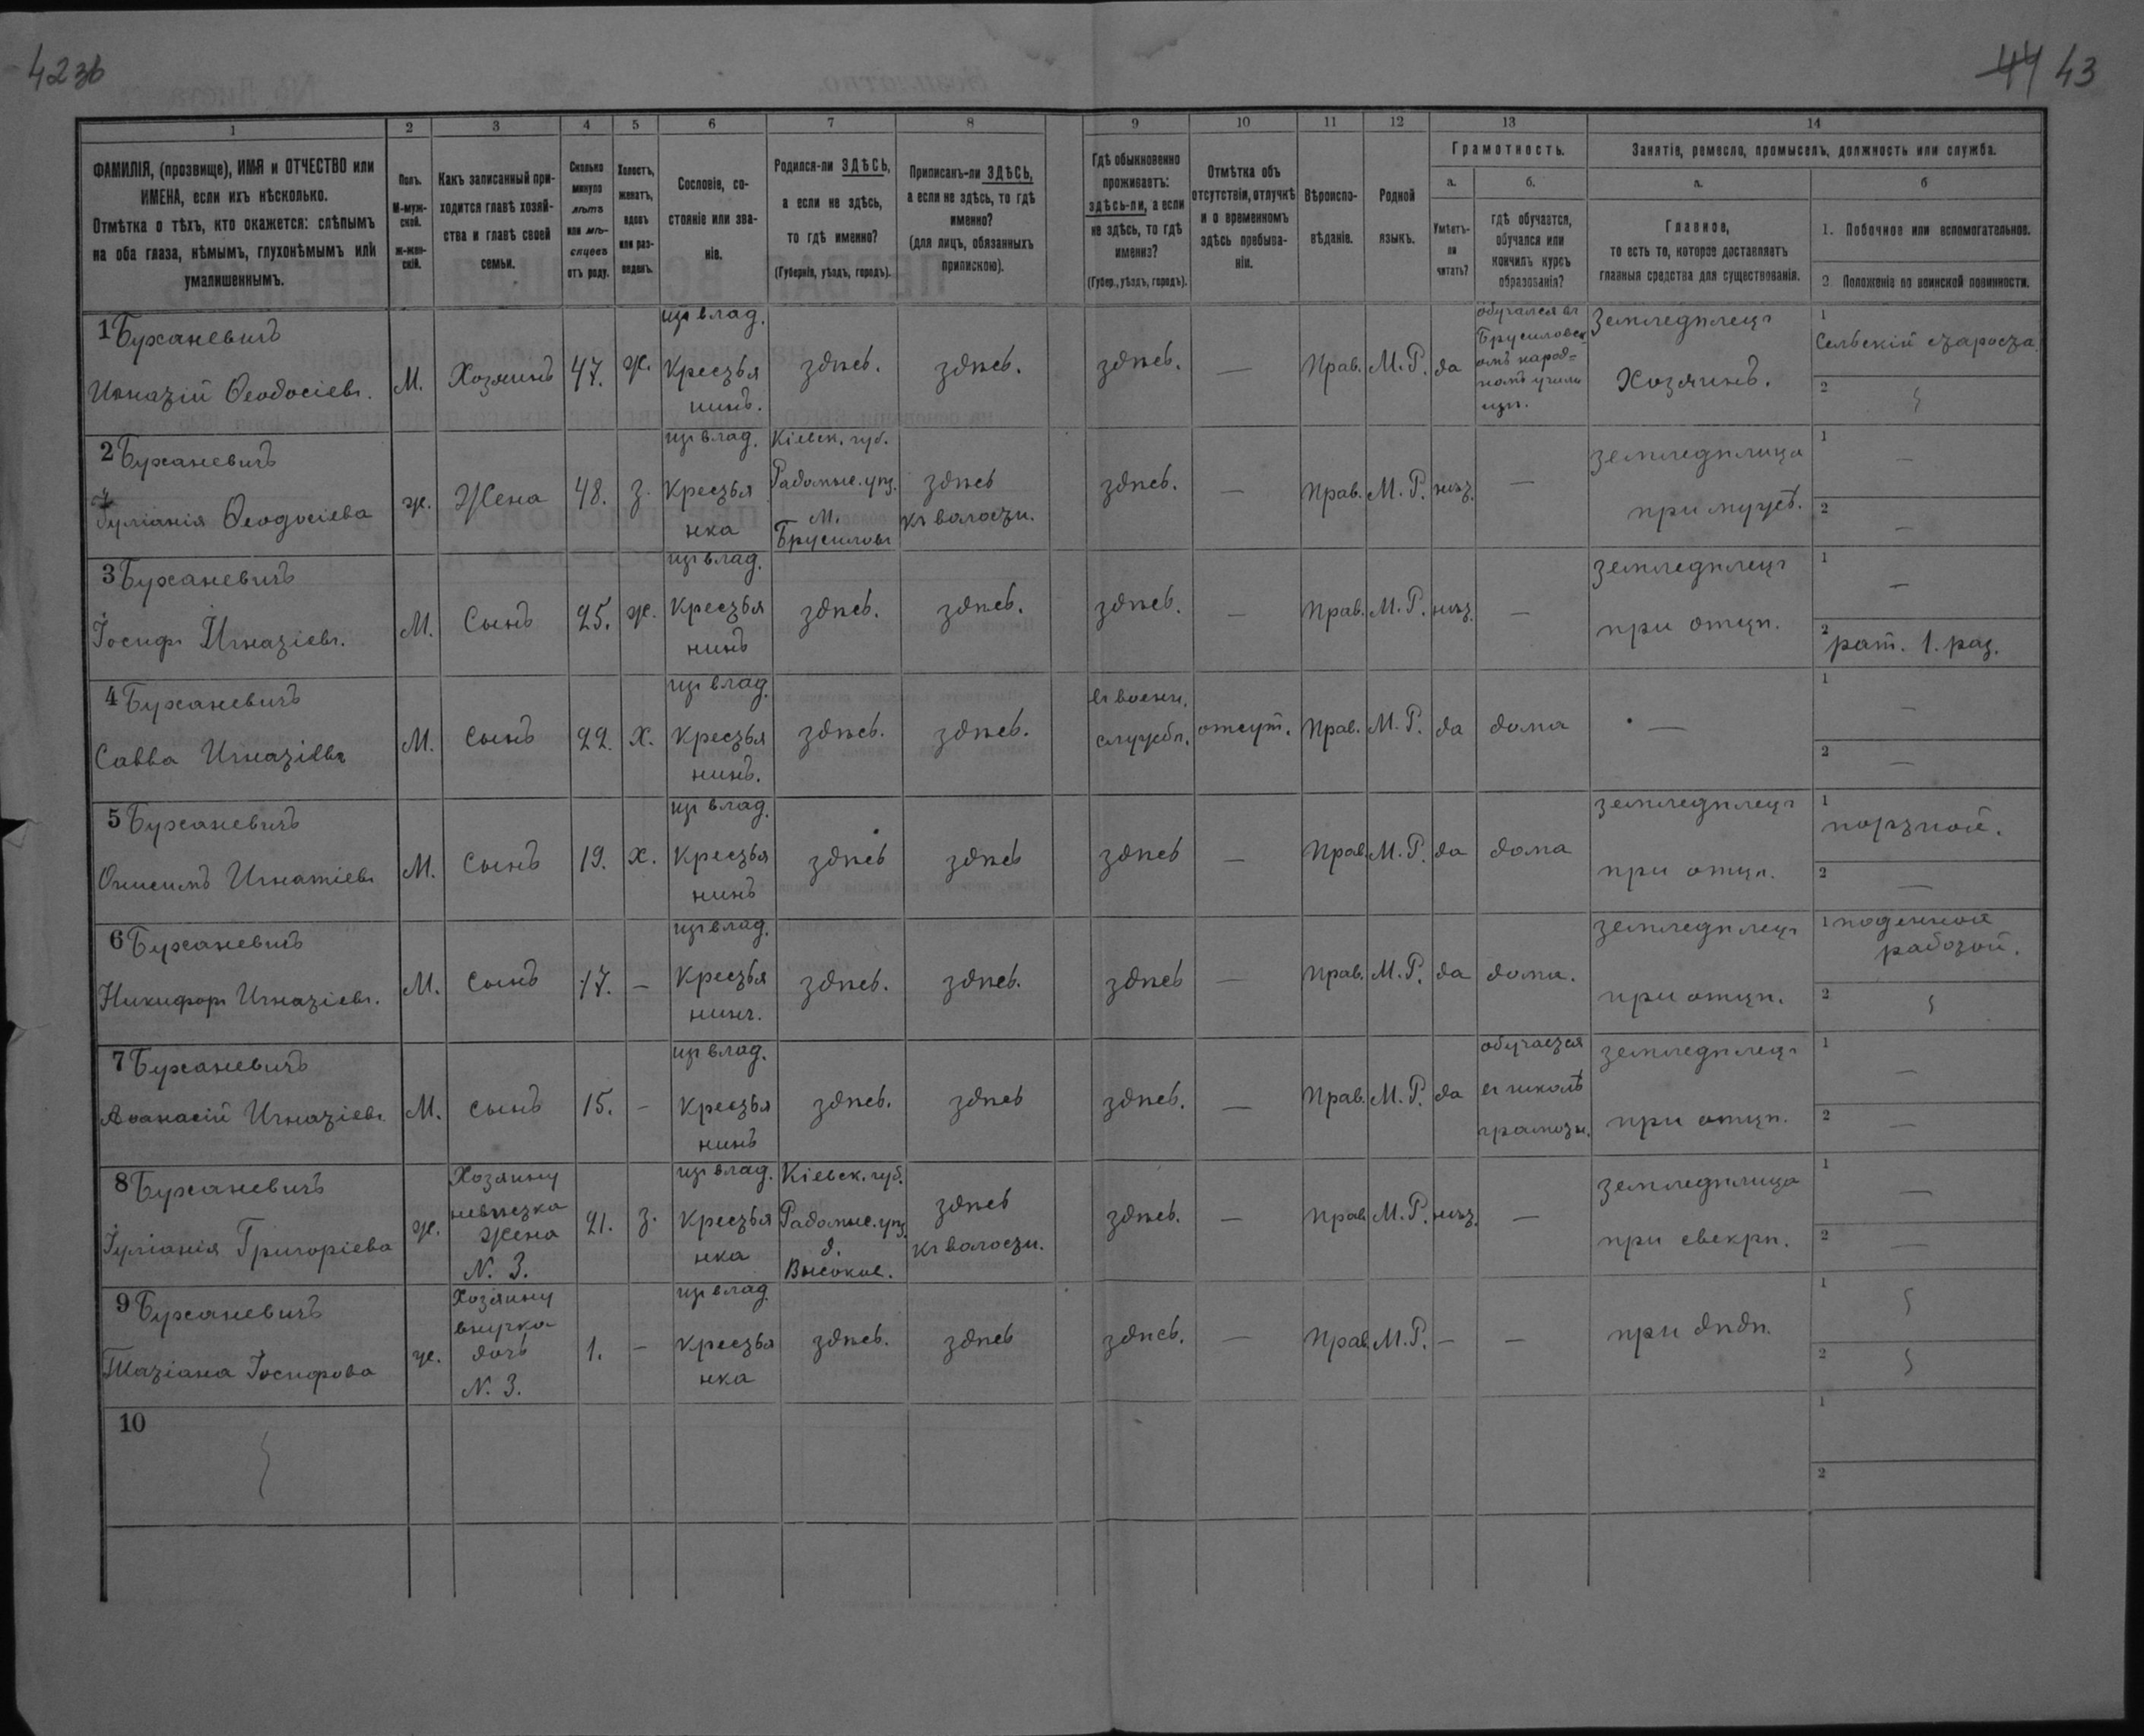 42 зв
44 43
1 2 3 4 5 6 7 8 9 10 11 12 13 14
ФАМИЛІЯ, (прозвище), ИМЯ и ОТЧЕСТВО или
ИМЕНА, если ихъ нѣсколько.
Отмѣтка о тѣхъ, кто окажется: слѣпымъ
на оба глаза, нѣмымъ, глухонѣмымъ или
умалишеннымъ.
Полъ.
М-муж-
ской.
ж-жен-
скій.
Какъ записанный при-
ходится главѣ хозяй-
ства и главѣ своей
семьи.
Сколько
минуло
лѣтъ
или мѣ-
сяцевъ
отъ роду.
Холостъ,
женатъ,
вдовъ
или раз-
веденъ.
Сословіе, со-
стояніе или зва-
ніе.
Родился-ли ЗДѢСЬ,
а если не здѣсь,
то гдѣ именно?
(Губернія, уѣздъ, городъ).
Приписанъ-ли ЗДѢСЬ,
а если не здѣсь, то гдѣ
именно?
(для лицъ, обязанныхъ
припискою).
Гдѣ обыкновенно
проживаетъ:
здѣсь-ли, а если
не здѣсь, то гдѣ
именно?
(Губер., уѣздъ, городъ).
Отмѣтка объ
отсутствіи, отлучкѣ
и о временномъ
здѣсь пребыва-
ніи.
Вѣроиспо-
вѣданіе.
Родной
языкъ.
Грамотность.
а.
Умѣетъ-
ли
читать?
б.
гдѣ обучается,
обучался или
кончилъ курсъ
образованія?
Занятіе, ремесло, промыселъ, должность или служба.
а.
Главное,
то есть то, которое доставляетъ
главныя средства для существованія.
б
1. Побочное или вспомогательное.
2. Положеніе по воинской повинности.
1 Буханевичъ
Игнатій Ѳеодосіевъ.
М.
Хозяинъ
47.
ж.
изъ влад.
Крестья
нинъ.
здѣсь.
здѣсь.
здѣсь.
—
Прав.
М.Р.
да
обучался въ
Брусиловск
омъ народ=
номъ учили
щѣ.
Земледѣлецъ
Хозяинъ.
1
Сельскій староста
2
2 Буханевичъ
Іуліанія Ѳеодосіева
ж.
Жена
48.
з.
изъ влад.
Крестья
нка
Кіевск. губ.
Радомыс. уѣз.
м.
Брусиловъ
здѣсь
къ волости.
здѣсь.
—
Прав.
М.Р.
нѣт.
—
земледѣлица
при мужѣ.
1 —
2 —
3 Буханевичъ
Іосифъ Игнатіевъ.
М.
Сынъ
25.
ж.
изъ влад.
Крестья
нинъ
здѣсь.
здѣсь.
здѣсь.
—
Прав.
М.Р.
нѣт.
—
земледѣлецъ
при отцѣ.
1 —
2 рат. 1. раз.
4 Буханевичъ
Савва Игнатіевъ
М.
Сынъ
22.
х.
изъ влад.
Крестья
нинъ.
здѣсь.
здѣсь.
въ воен.
службѣ.
отсут.
Прав.
М.Р.
да
дома
—
1 —
2 —
5 Буханевичъ
Онисимъ Игнатіевъ
М.
Сынъ
19.
х.
изъ влад.
Крестья
нинъ
здѣсь
здѣсь
здѣсь
—
Прав.
М.Р.
да
дома
земледѣлецъ
при отцѣ.
1
портной.
2 —
6 Буханевичъ
Никифоръ Игнатіевъ.
М.
Сынъ
17.
—
изъ влад.
Крестья
нинъ.
здѣсь.
здѣсь.
здѣсь
—
Прав.
М.Р.
да
дома.
земледѣлецъ
при отцѣ.
1 поденной
работой.
2
7 Буханевичъ
Аѳанасій Игнатіевъ
М.
сынъ
15.
—
изъ влад.
Крестья
нинъ
здѣсь.
здѣсь
здѣсь.
—
Прав.
М.Р.
да
обучается
въ школѣ
грамоты.
земледѣлецъ
при отцѣ.
1 —
2 —
8 Буханевичъ
Іуліанія Григоріева
ж.
Хозяину
невѣстка
жена
N. 3.
21.
з.
изъ влад.
Крестья
нка
Кіевск. губ.
Радомыс. уѣз.
д.
Высокое.
здѣсь
къ волости.
здѣсь.
—
Прав
М.Р.
нѣт.
—
земледѣлица
при свекрѣ.
1 —
2 —
9 Буханевичъ
Татіана Іосифова
ж.
Хозяину
внучка
дочь
N. 3.
1.
—
изъ влад.
Крестья
нка
здѣсь.
здѣсь
здѣсь.
—
Прав.
М.Р.
—
—
при дѣдѣ.
1
2
10
1
2